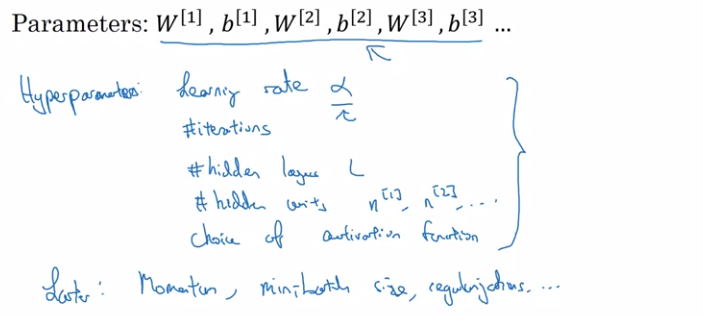 Parameters: W[1] , b[1] , W[2] , b[2] , W[3] , b[3] ...
Hyperparameters: Learning rate α
#iterations
#hidden layers L
#hidden units n[1], n[2], ....
choice of activation function
Later: Momentum, minibatch size, regularizations, ...